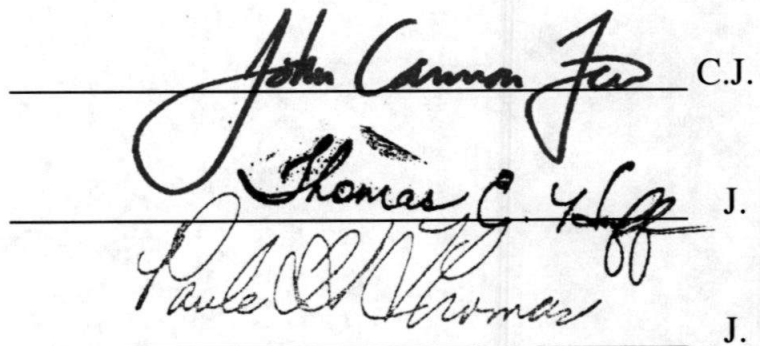 John Cannon Few C.J.
Thomas E. Huff J.
Paula H. Thomas J.